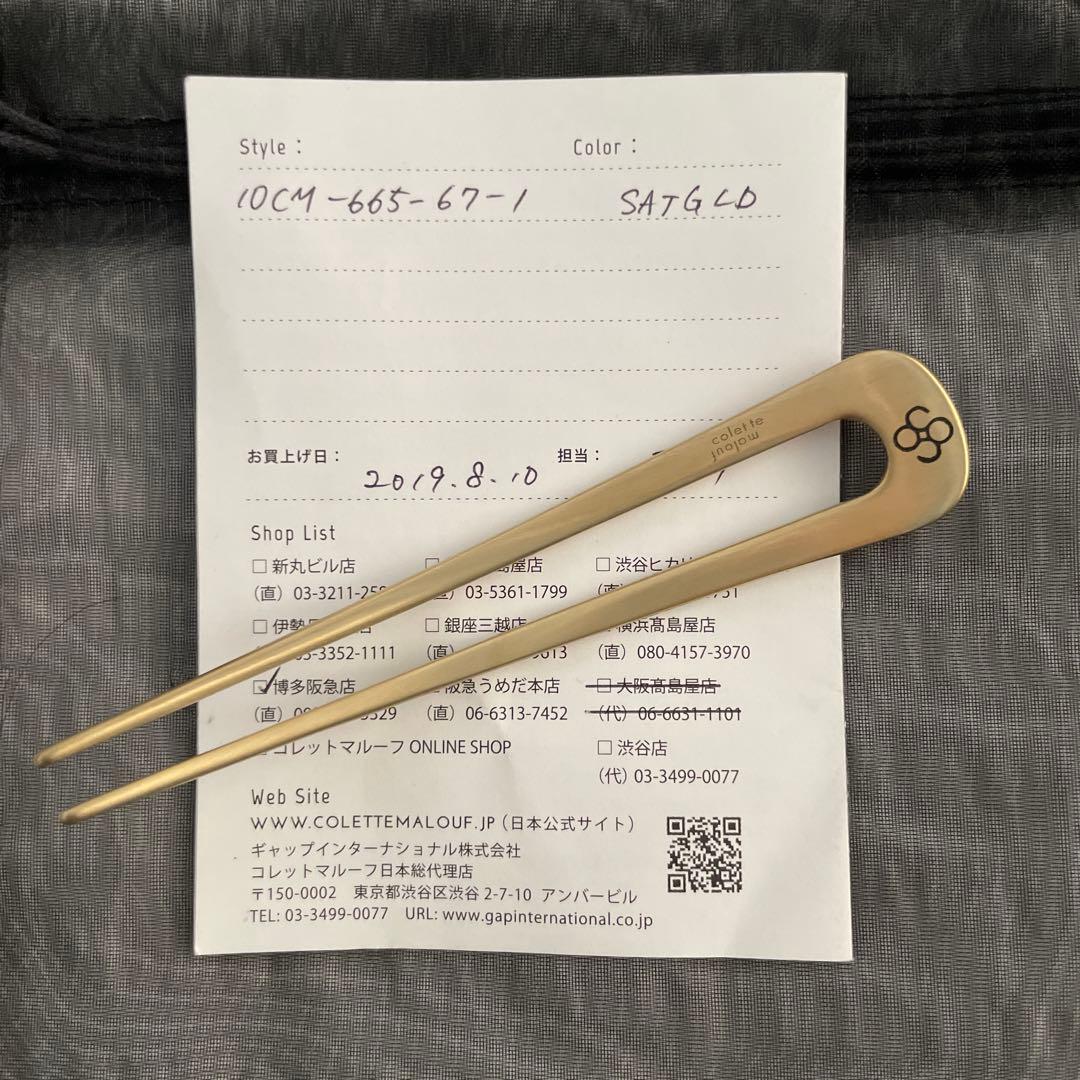 Style : Color :
10CM-665-67-1 SATGLD
colette
malouf
お買上げ日： 担当：
2019.8.10
Shop List
□ 新丸ビル店 □ 島屋店 □ 渋谷ヒカリ
（直）03-3211-25 （直）03-5361-1799 （直）
□ 伊勢 店 □ 銀座三越店 横浜髙島屋店
3352-1111 （直） （直）080-4157-3970
☑ 博多阪急店 阪急うめだ本店 □ 大阪髙島屋店
（直） （直）06-6313-7452 （代）06-6631-1101
コレットマルーフ ONLINE SHOP □ 渋谷店
（代）03-3499-0077
Web Site
WWW.COLETTEMALOUF.JP（日本公式サイト）
ギャップインターナショナル株式会社
コレットマルーフ日本総代理店
〒150-0002 東京都渋谷区渋谷 2-7-10 アンバービル
TEL: 03-3499-0077 URL: www.gapinternational.co.jp